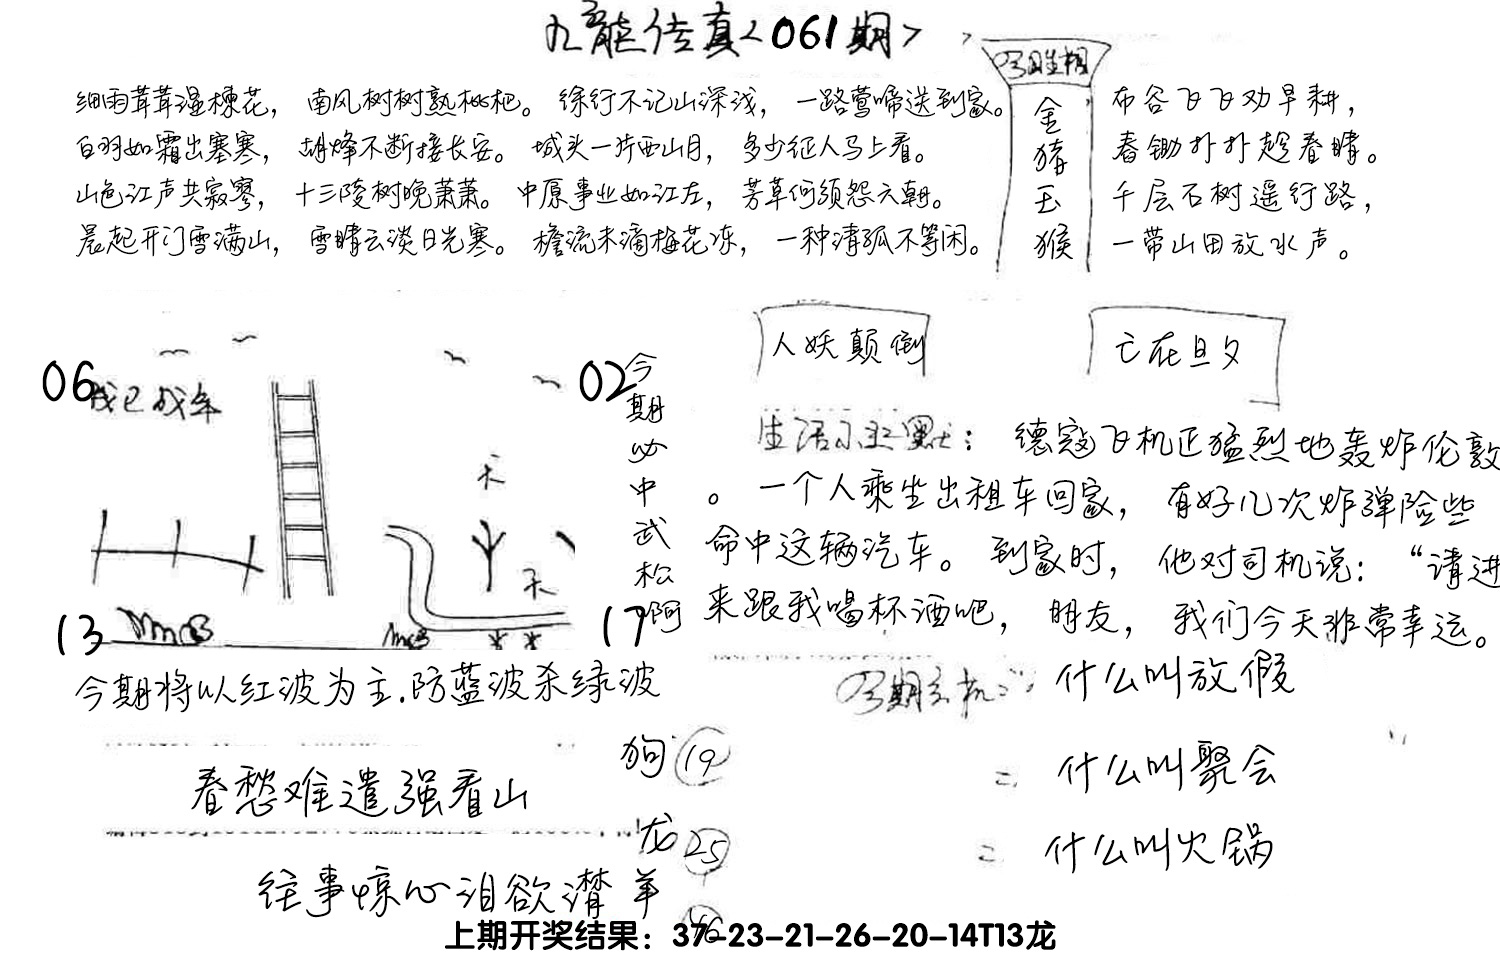 九龙传真<061期>
细雨茸茸湿楝花，南风树树熟枇杷。徐行不记山深浅，一路莺啼送到家。
白羽如霜出塞寒，胡烽不断接长安。城头一片西山月，多少征人马上看。
山色江声共寂寥，十三陵树晚萧萧。中原事业如江左，芳草何须怨六朝。
晨起开门雪满山，雪晴云淡日光寒。檐流未滴梅花冻，一种清孤不等闲。
今期生相
金
猪
玉
猴
布谷飞飞劝早耕，
春锄扑扑趁春晴。
千层石树遥行路，
一带山田放水声。
06
02
13
17
天
天
今
期
必
中
武
松
啊
今期将以红波为主.防蓝波杀绿波
春愁难遣强看山
往事惊心泪欲潸
狗 19
龙 25
羊 46
人妖颠倒
亡在旦夕
生活幽默：德寇飞机正猛烈地轰炸伦敦
。一个人乘坐出租车回家，有好几次炸弹险些
命中这辆汽车。到家时，他对司机说：“请进
来跟我喝杯酒吧，朋友，我们今天非常幸运。
今期玄机 什么叫放假
= 什么叫聚会
= 什么叫火锅
上期开奖结果：37-23-21-26-20-14T13龙